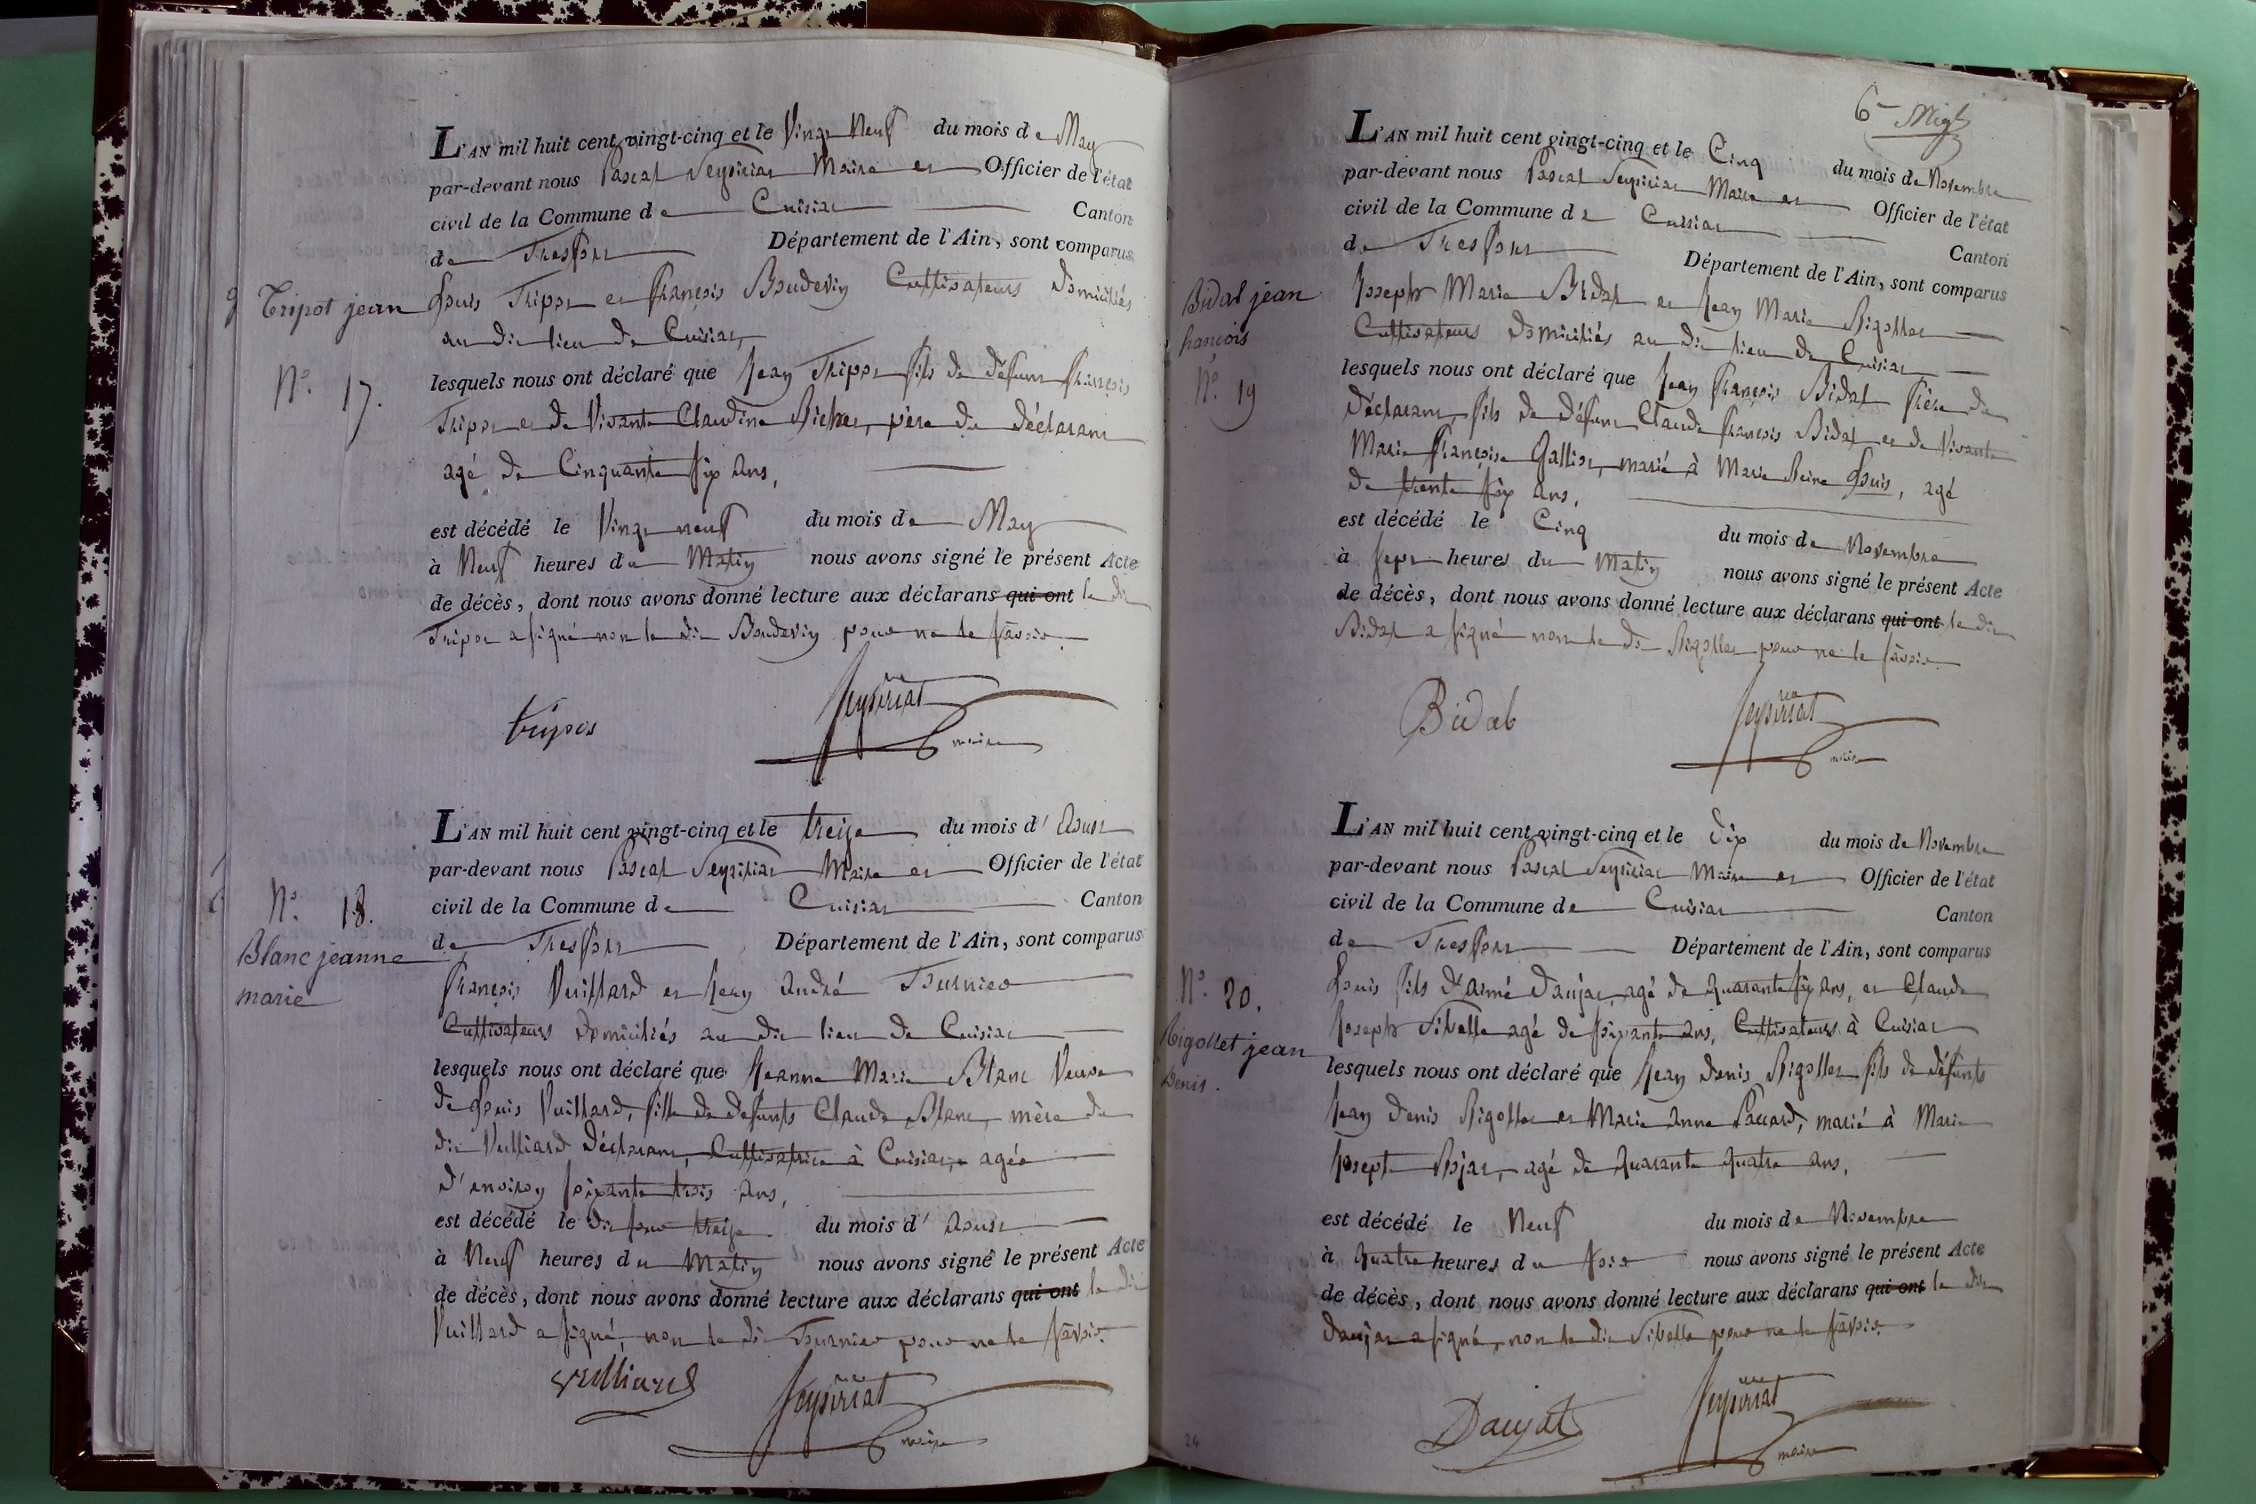 L'AN mil huit cent vingt-cinq et le Vingt Neuf du mois de May
par-devant nous Pascal Seysiriat Maire et Officier de l'état
civil de la Commune de Cuisiat Canton
de Treffort Département de l'Ain, sont comparus
Tripot jean
Louis Tripot et François Boudevin Cultivateurs Domiciliés
au dit lieu de Cuisiat,
N.º 17.
lesquels nous ont déclaré que Jean Tripot fils de défunt François
Tripot et de Vivante Claudine Pichet, père du déclarant
agé de Cinquante six ans,
est décédé le Vingt neuf du mois de May
à Neuf heures du Matin nous avons signé le présent Acte
de décès, dont nous avons donné lecture aux déclarans qui ont le dit
Tripot a signé non le dit Boudevin pour ne le savoir.
tripos
Seysiriat
maire
L'AN mil huit cent vingt-cinq et le treize du mois d'Aoust
par-devant nous Pascal Seysiriat Maire et Officier de l'état
civil de la Commune de Cuisiat Canton
de Treffort Département de l'Ain, sont comparus
N.º 18.
Blanc jeanne
marie
François Vuillard et Jean André Tournier
Cultivateurs domiciliés au dit lieu de Cuisiat
lesquels nous ont déclaré que Jeanne Marie Blanc Veuve
de Louis Vuillard, fille de defunts Claude Blanc, mère du
dit Vulliard Déclarant, Cultivatrice à Cuisiat, agée
d'environ soixante trois ans,
est décédé le dit jour treize du mois d'Aoust
à Neuf heures du Matin nous avons signé le présent Acte
de décès, dont nous avons donné lecture aux déclarans qui ont le dit
Vuillard a signé, non le dit Tournier pour ne le savoir.
vulliard
Seysiriat
maire
6
L'AN mil huit cent vingt-cinq et le Cinq du mois de Novembre
par-devant nous Pascal Seysiriat Maire et Officier de l'état
civil de la Commune de Cuisiat Canton
de Treffort Département de l'Ain, sont comparus
Bidal jean
françois
N.º 19
Joseph Marie Bidal et Jean Marie Rigollet
Cultivateurs domiciliés au dit lieu de Cuisiat
lesquels nous ont déclaré que Jean François Bidal frère du
déclarant, fils de défunt Claude François Bidal et de Vivante
Marie Françoise Gallion, marié à Marie Reine Louis, agé
de trente six ans,
est décédé le Cinq du mois de Novembre
à sept heures du Matin nous avons signé le présent Acte
de décès, dont nous avons donné lecture aux déclarans qui ont le dit
Bidal a signé non le dit Rigollet pour ne le savoir.
Bidal
Seysiriat
maire
L'AN mil huit cent vingt-cinq et le dix du mois de Novembre
par-devant nous Pascal Seysiriat Maire et Officier de l'état
civil de la Commune de Cuisiat Canton
de Treffort Département de l'Ain, sont comparus
N.º 20.
Rigollet jean
Denis.
Louis fils d'aimé Daujat, agé de quarante six ans, et Claude
Joseph Sibelle agé de soixante ans, Cultivateurs à Cuisiat
lesquels nous ont déclaré que Jean Denis Rigollet fils de défunts
Jean Denis Rigollet et Marie Anne Paccard, marié à Marie
Josepte Rojat, agé de quarante quatre ans,
est décédé le Neuf du mois de Novembre
à quatre heures du soir nous avons signé le présent Acte
de décès, dont nous avons donné lecture aux déclarans qui ont le dit
Daujat a signé, non le dit Sibelle pour ne le savoir.
Daujat
Seysiriat
maire
24